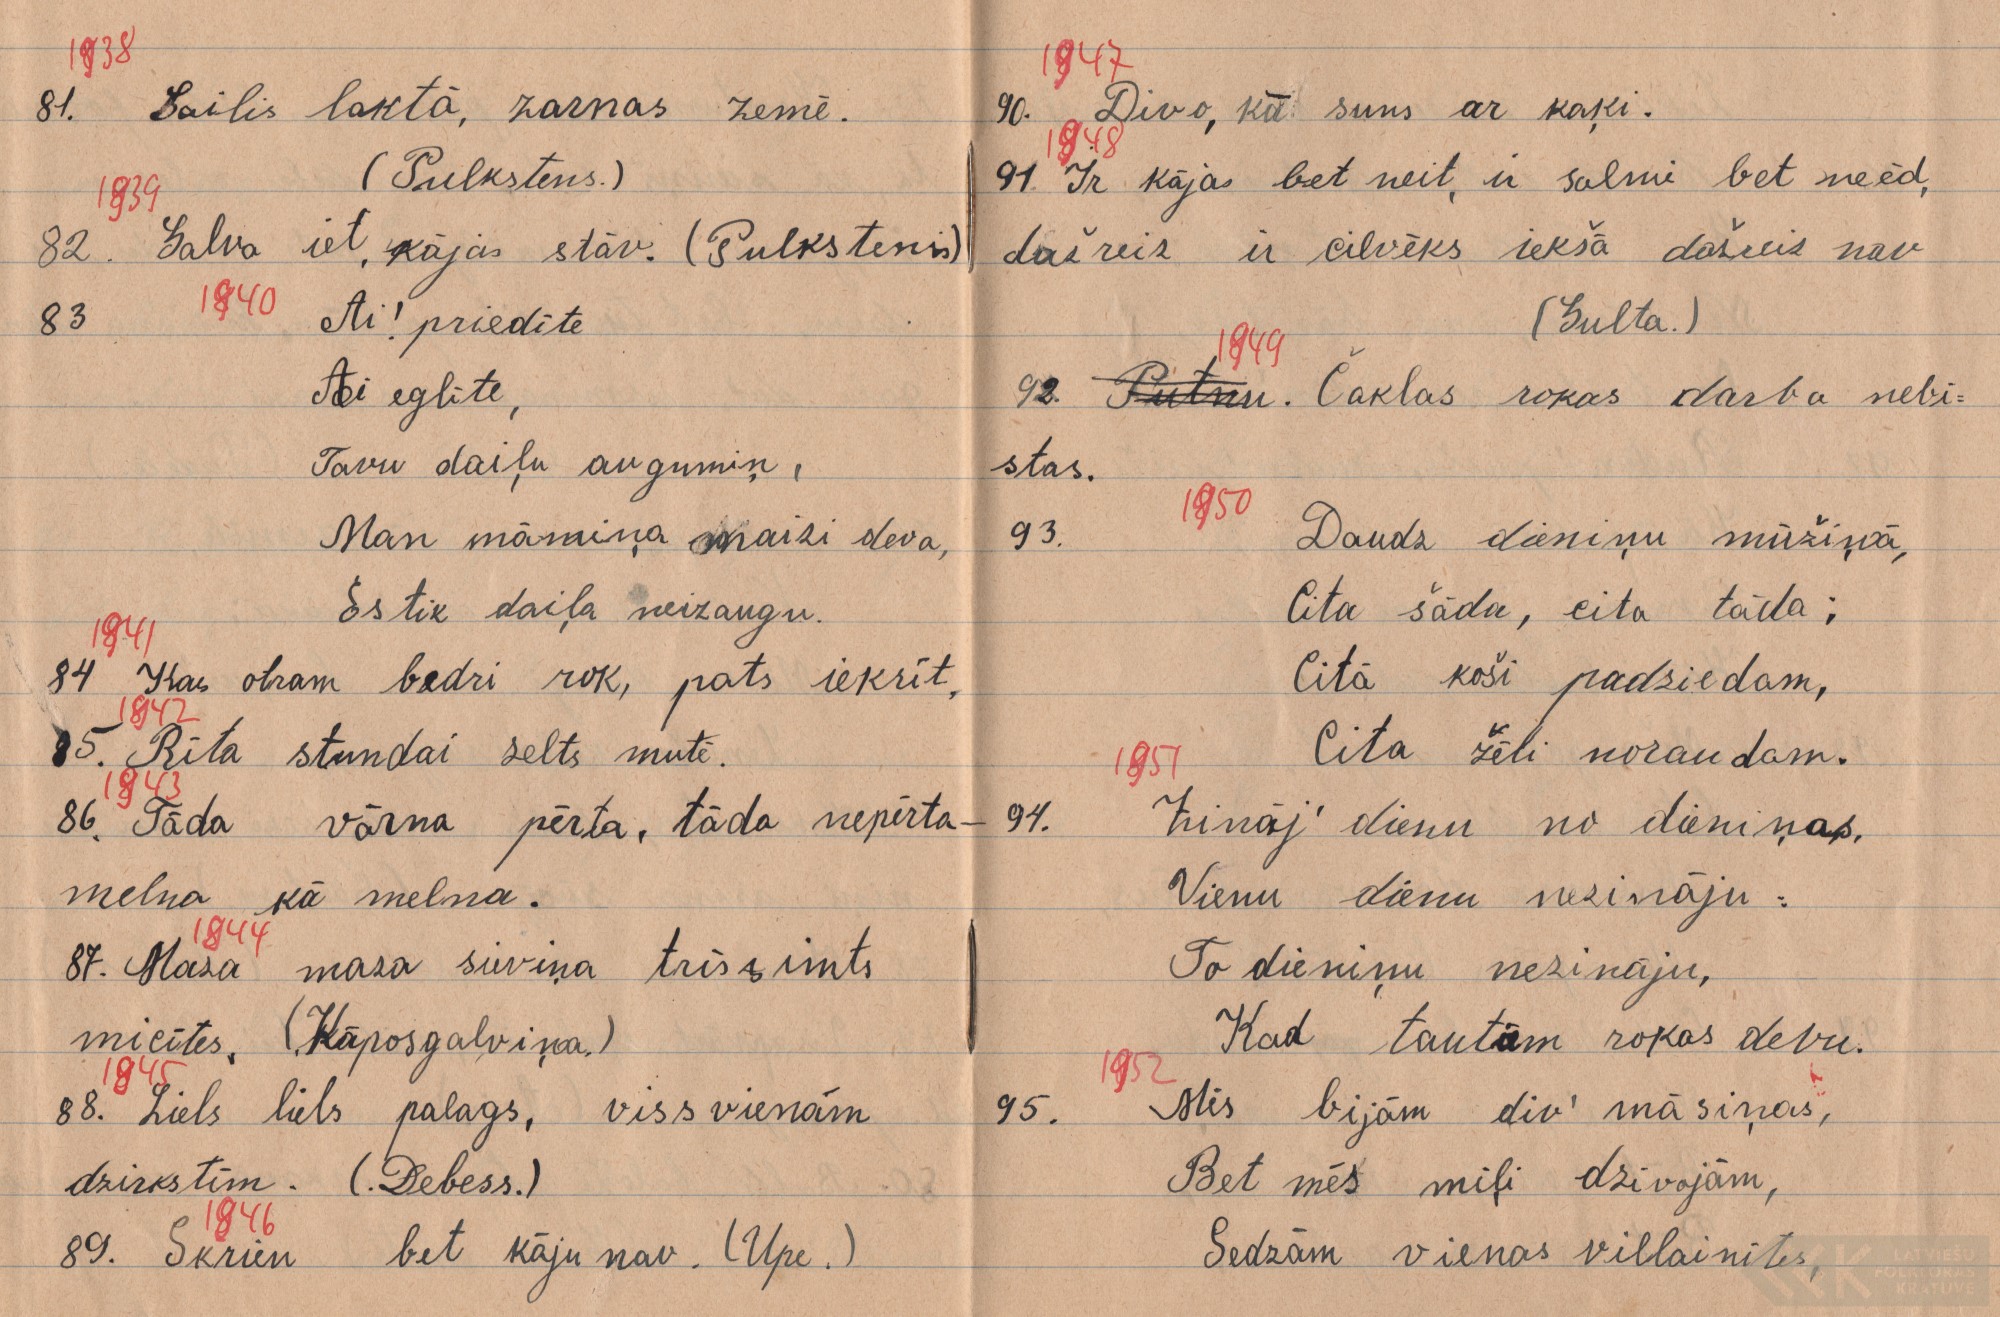 1938
81. Gailis laktā, zarnas zemē.
(Pulkstens.)
1939
82. Galva iet, kājas stāv. (Pulkstenis)
1940
83 Ai! priedīte
Ai eglīte,
Tavu daiļu augumiņ,
Man māmiņa maizi deva,
Es tik daiļa neizaugu.
1941
84 Kas otram bedri rok, pats iekrīt,
1942
85. Rīta stundai zelts mutē.
1943
86. Tāda vārna pērta, tāda nepērta –
melna kā melna.
1944
87. Maza maza sieviņa trīssimts
micītes. (Kāposgalviņa.)
1945
88. Liels liels palags, viss vienām
dzirkstīm. (Debess.)
1946
89. Skrien bet kāju nav. (Upe.)
1947
90. Divo, kā suns ar kaķi.
1948
91. Ir kājas bet neit, ir salmi bet neēd,
dažreiz ir cilvēks iekšā dažreiz nav
(Gulta.)
1949
92. Putnu. Čaklas rokas darba nebi=
stas.
1950
93. Daudz dieniņu mūžiņā,
Cita šāda, cita tāda;
Citā koši padziedam,
Cita žēli noraudam.
1951
94. Zināj' dienu no dieniņas,
Vienu dienu nezināju:
To dieniņu nezināju,
Kad tautām rokas devu.
1952
95. Mēs bijām div' māsiņas,
Bet mēs mīļi dzīvojām,
Sedzām vienas villainītes,
LATVIEŠU
FOLKLORAS
KRĀTUVE